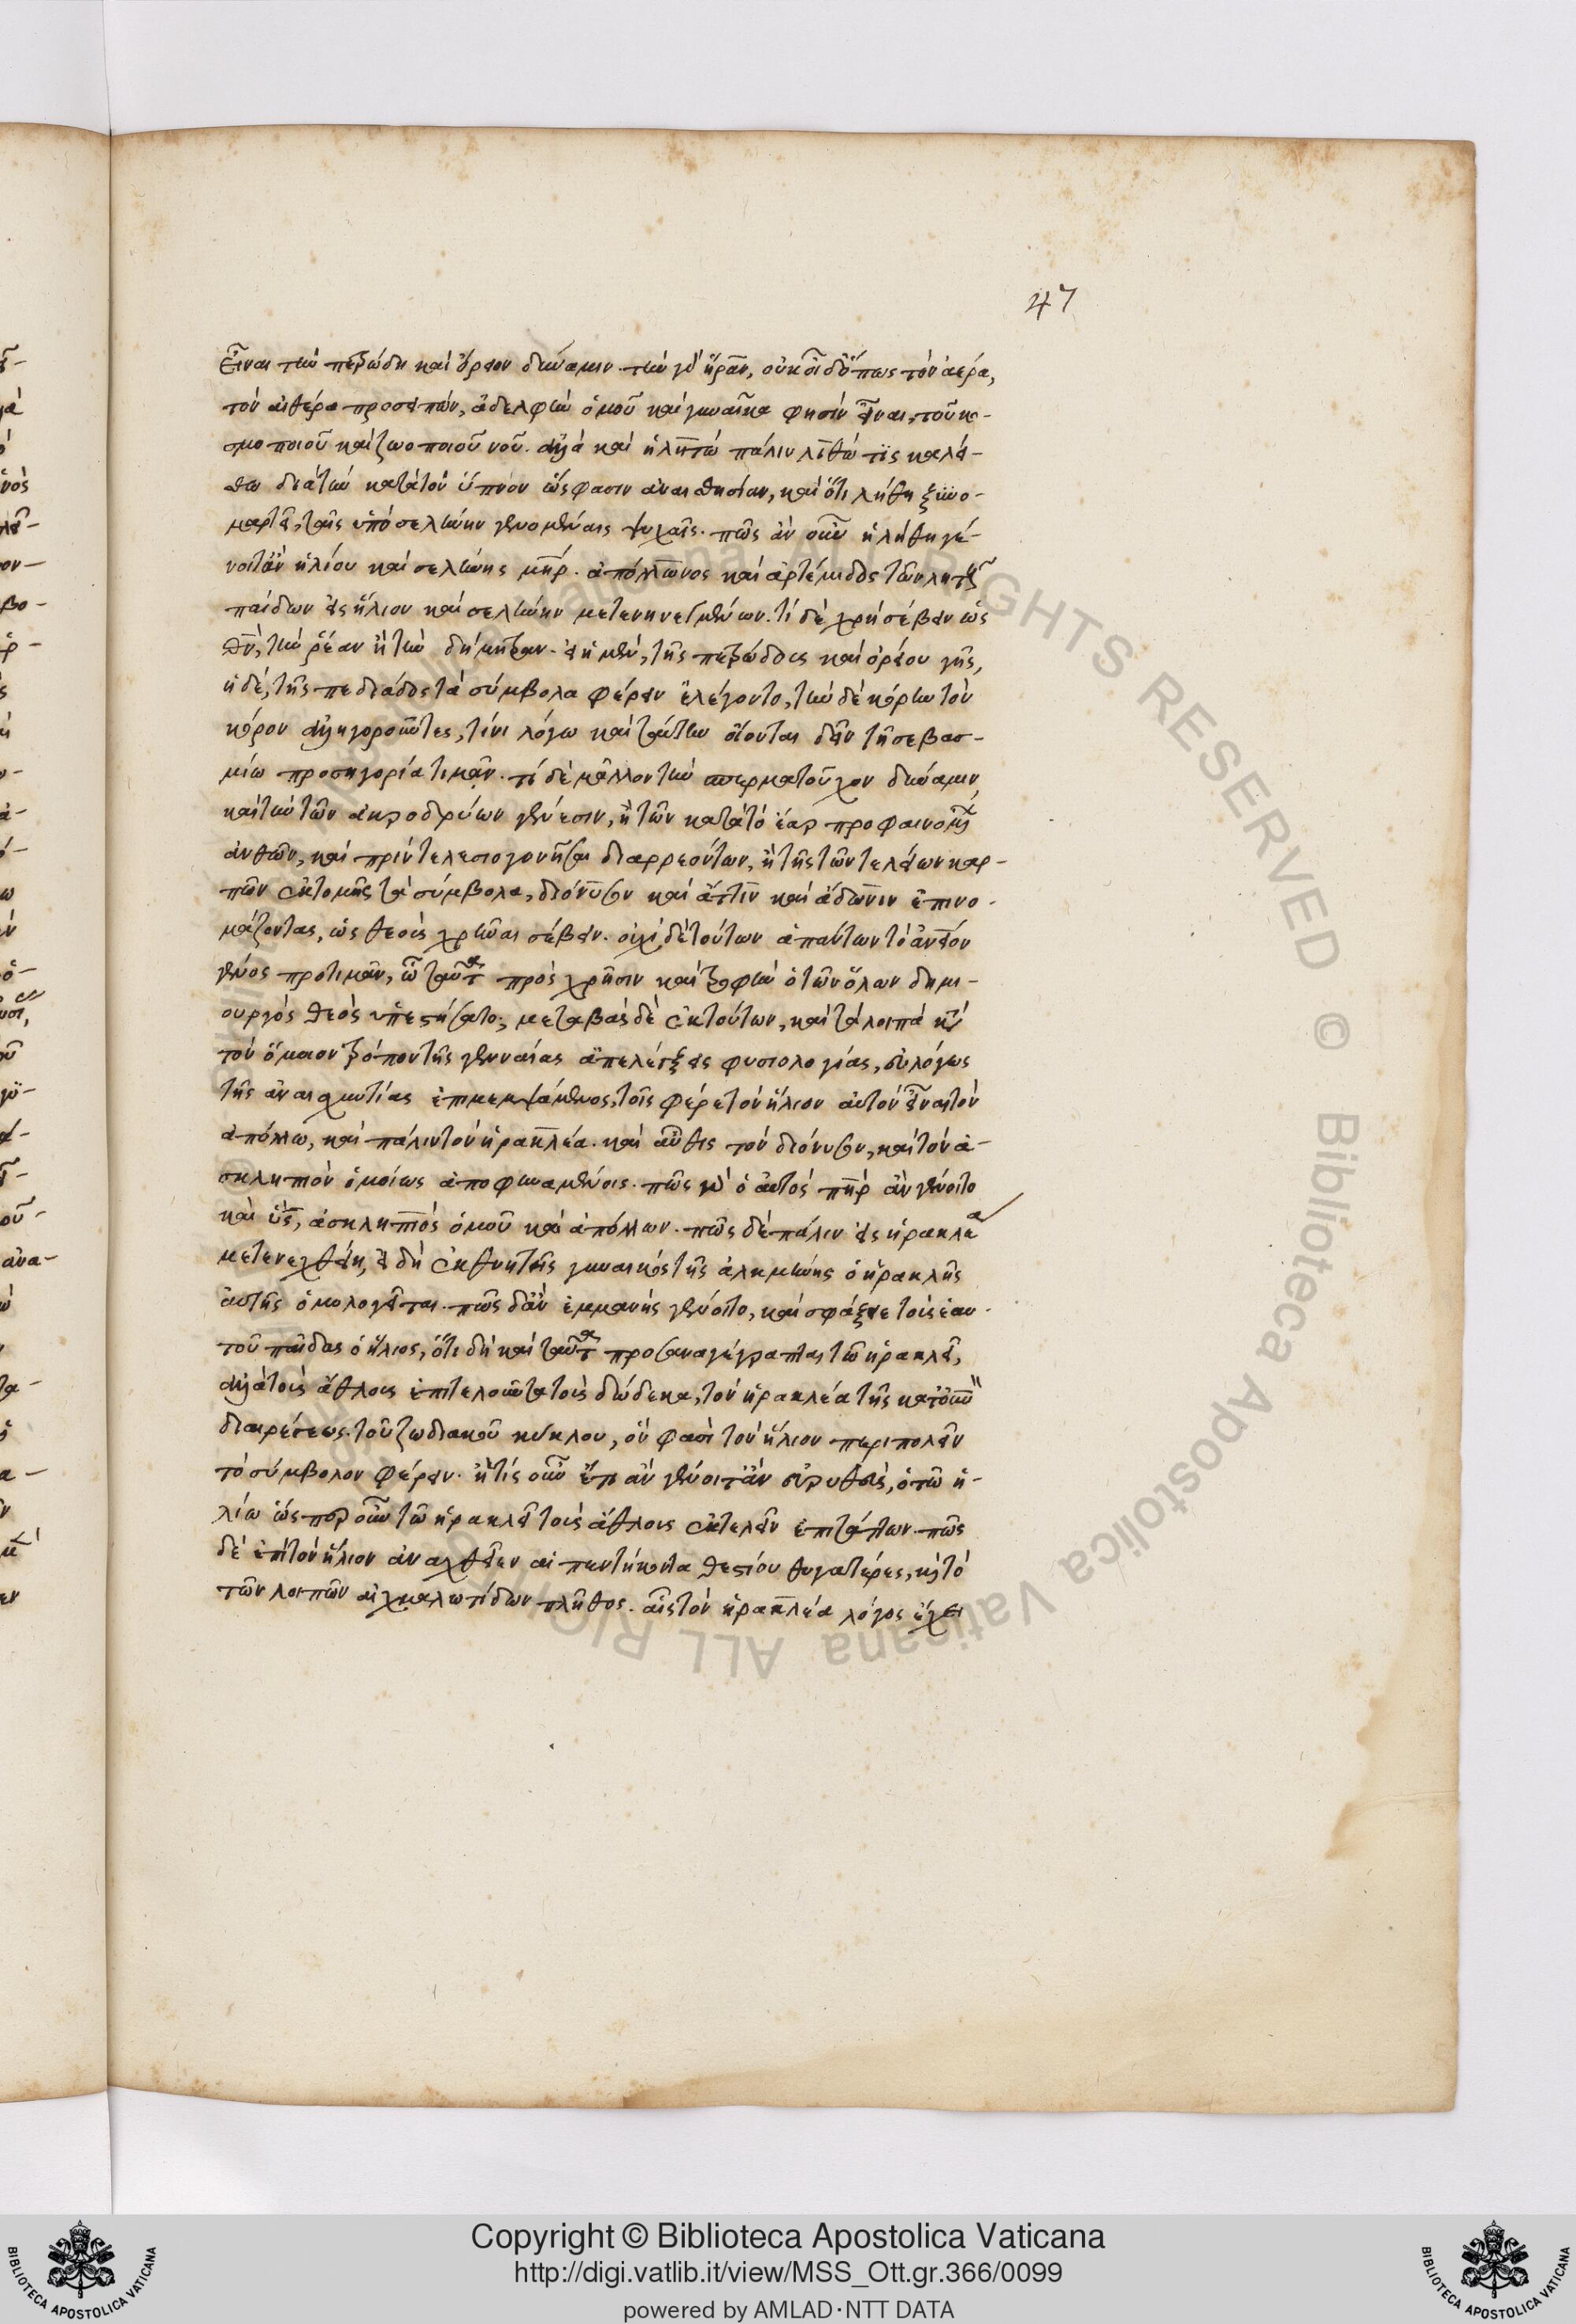 47
εἶναι τὴν πετρώδη καὶ ὄρειον δύναμιν. τὴν γὰρ ἥραν, οὐκ οἶδ' ὅπως τὸν ἀέρα,
τὸν αἰθέρα προσειπὼν, ἀδελφὴν ὁμοῦ καὶ γυναῖκα φησὶν εἶναι, τοῦ κο-
σμοποιοῦ καὶ ζωοποιοῦ νοῦ. ἀλλὰ καὶ ἡ λητὼ πάλιν ληθώ τις καλεί-
σθω διὰ τὴν κατὰ τὸν ὕπνον ὥς φασιν ἀναισθησίαν, καὶ ὅτι λήθη ξυνο-
μαρτεῖ, ταῖς ὑπὸ σελήνην γενομέναις ψυχαῖς. πῶς ἂν οὖν ἡ λήθη γέ-
νοιτ' ἂν ἡλίου καὶ σελήνης μηρ. ἀπόλλωνος καὶ ἀρτέμιδος τῶν λητοῦς
παίδων εἰς ἥλιον καὶ σελήνην μετενηνεγμένων. τί δὲ χρὴ σέβειν ὡς
θν, τὴν ῥέαν ἢ τὴν δήμητραν. εἰ ἡ μὲν, τῆς πετρώδους καὶ ὀρείου γῆς,
ἡ δὲ, τῆς πεδιάδος τὰ σύμβολα φέρειν ἐλέγοντο, τὴν δὲ κόρην τὸν
κόρον ἀλληγοροῦντες, τίνι λόγω καὶ ταύτην οἴονται δεῖν τῆ σεβασ-
μίω προσηγορία τιμᾶν. τί δὲ μᾶλλον τὴν σπερματοῦχον δύναμιν,
καὶ τὴν τῶν ἀκροδρύων γένεσιν, ἢ τῶν κατὰ τὸ ἔαρ προφαινομένων
ἀνθῶν, καὶ πρὶν τελεσιογονῆσαι διαρρεόντων, ἢ τῆς τῶν τελείων καρ-
πῶν ἐκτομῆς τὰ σύμβολα, διόνυσον καὶ ἄττιν καὶ ἄδωνιν ἐπονο-
μάζοντας, ὡς θεοὺς χρῆναι σέβειν. οὐχὶ δὲ τούτων ἁπάντων τὸ ἀνθρώπων
γένος προτιμᾶν, ὧ ταῦτα πρὸς χρῆσιν καὶ τροφὴν ὁ τῶν ὅλων δημι-
ουργὸς θεὸς ὑπεστήσατο; μεταβὰς δὲ ἐκ τούτων, καὶ τὰ λοιπὰ κατὰ
τὸν ὅμοιον τρόπον τῆς γενναίας ἀπελέγξεις φυσιολογίας, εὐλόγως
τῆς ἀναισχυντίας ἐπιμεμψάμενος, τοῖς φέρε τὸν ἥλιον αὐτὸν εἶναι τὸν
ἀπόλλω, καὶ πάλιν τὸν ἡρακλέα. καὶ αὖθις τὸν διόνυσον, καὶ τὸν ἀ-
σκληπιὸν ὁμοίως ἀποφηναμένοις. πῶς γὰρ ὁ αὐτὸς πηρ ἂν γένοιτο
καὶ υς, ἀσκληπιὸς ὁμοῦ καὶ ἀπόλλων. πῶς δὲ πάλιν εἰς ἡρακλέα
μετενεχθείη, εἰ δὴ ἐκ θνητῆς γυναικὸς τῆς ἀλκμήνης ὁ ἡρακλῆς
αὐτῆς ὁμολογεῖται. πῶς δ' ἂν ἐμμανὴς γένοιτο, καὶ σφάξειε τοὺς ἑαυ-
τοῦ παῖδας ὁ ἥλιος, ὅτι δὴ καὶ ταῦτα προσαναγέγραπται τῶ ἡρακλεῖ,
ἀλλὰ τοὺς ἄθλους ἐπιτελοῦντα τοὺς δώδεκα, τὸν ἡρακλέα τῆς κατ' οὐρανὸν
διαιρέσεως τοῦ ζωδιακοῦ κύκλου, ὃν φασὶ τὸν ἥλιον περιπολεῖν
τὸ σύμβολον φέρειν. ἢ τίς οὖν ἔτι ἂν γένοιτ' ἂν εὐρυσθεὺς, ὁ τῶ ἡ-
λίω ὥσπερ οὖν τῶ ἡρακλεῖ τοὺς ἄθλους ἐκτελεῖν ἐπιτάττων. πῶς
δὲ ἐπὶ τὸν ἥλιον ἀναχθεῖεν αἱ πεντήκοντα θεστίου θυγατέρες, καὶ τὸ
τῶν λοιπῶν αἰχμαλωτίδων πλῆθος. αἷς τὸν ἡρακλέα λόγος ἔχει
Copyright © Biblioteca Apostolica Vaticana
http://digi.vatlib.it/view/MSS_Ott.gr.366/0099
powered by AMLAD·NTT DATA